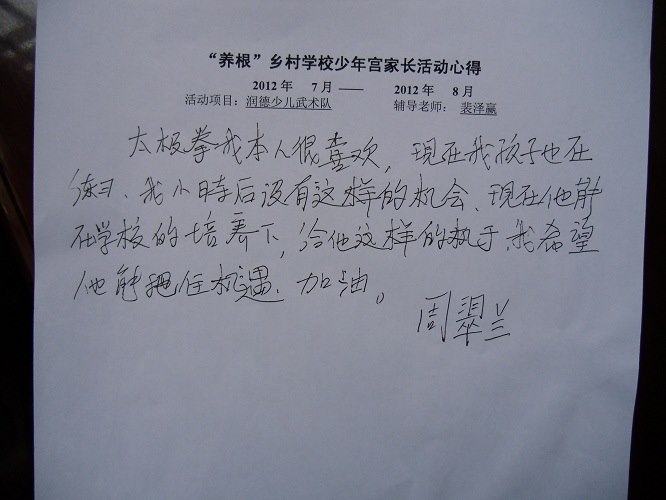 “养根”乡村学校少年宫家长活动心得
2012 年 7 月 —— 2012 年 8 月
活动项目：润德少儿武术队 辅导老师： 裴泽赢
太极拳我本人很喜欢，现在我孩子也在
练习、我小时后没有这样的机会、现在他能
在学校的培养下，给他这样的机于，我希望
他能把住机遇、加油。
周翠兰